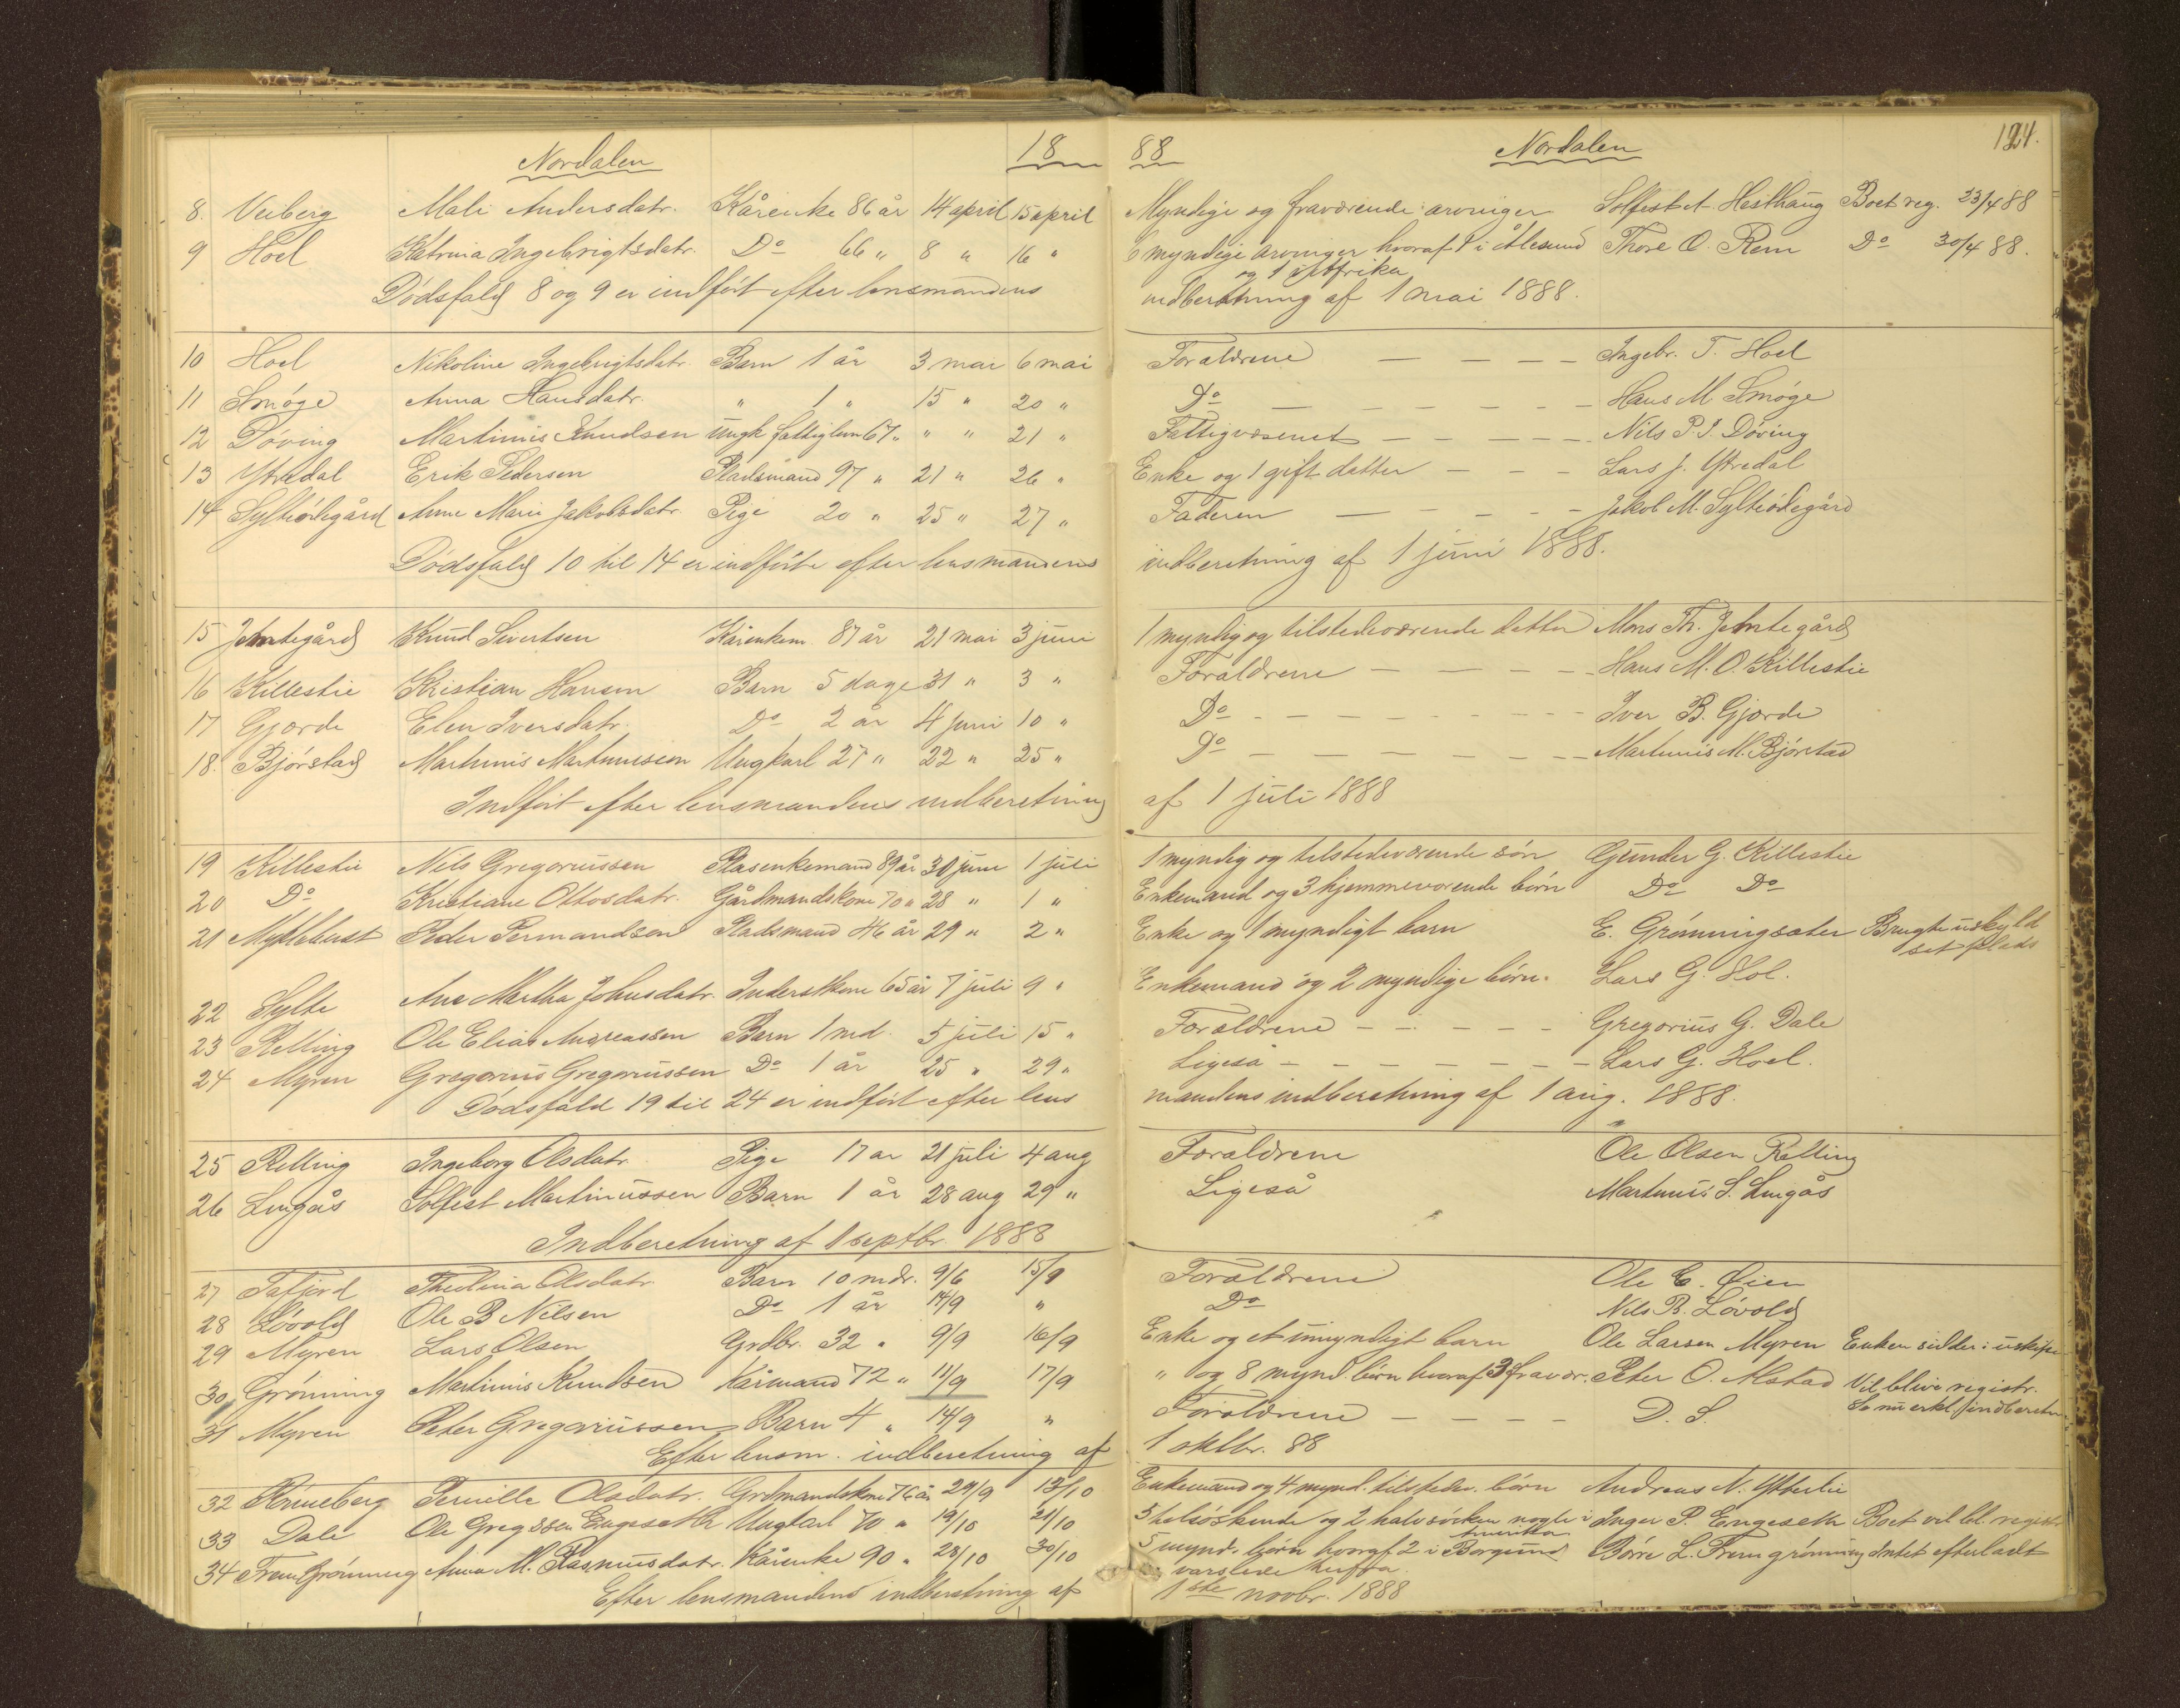 Nordalen 18 88 Nordalen 124.
8. Veiberg Mali Andersdatr. Kårenke 86 år 14 april 15 april Myndige og fraværende arvinger Solfest A. Hesthaug Boet reg. 23/4 88
9 Hoel Katrina Ingebrigtsdatr. Do 66 " 8 " 16 " 6 myndige arvinger hvoraf 1 i Ålesund Thore O. Rem Do 30/4 88.
og 1 i Afrika
Dødsfald 8 og 9 er indført efter lensmandens indberetning af 1 mai 1888.
10 Hoel Nikoline Ingebrigtsdatr. Barn 1 år 3 mai 6 mai Forældrene — — — — Ingebr. T. Hoel
11 Smøge Anna Hansdatr. " 1 " 15 " 20 " Do — — — — — — Hans M Smøge
12 Døving Martinus Knudsen ungk. fattiglem 67 " " " 21 " Fattigvæsenet — — — — Nils P. I. Døving
13 Ytredal Erik Pedersen Pladsmand 97 " 21 " 26 " Enke og 1 gift datter — — — Lars J. Ytredal
14 Sylteødegård Anne Marie Jakobsdatr. Pige 20 " 25 " 27 " Faderen — — — — — Jakob M. Sylteødegård
Dødsfald 10 til 14 er indførte efter lensmandens indberetning af 1 juni 1888.
15 Jemtegård Knud Sivertsen Kårenkem. 87 år 21 mai 3 juni 1 myndig og tilstedeværende datter Mons Th. Jemtegård
16 Killestie Kristian Hansen Barn 5 dage 31 " 3 " Forældrene — — — — Hans M. O. Killestie
17 Gjærde Elen Iversdatr. Do 2 år 4 juni 10 " Do - - - - - - - Iver B. Gjærde
18. Bjørstad Martinus Martinussen Ungkarl 27 " 22 " 25 " Do — — — — — — Martinus M. Bjørstad
Indført efter lensmandens indberetning af 1 juli 1888
19 Killestie Nils Gregoriussen Plasenkemand 89 år 30 juni 1 juli 1 myndig og tilstedeværende søn Gunder G. Killestie
20 Do Kristiane Ottosdatr. Gårdmandskone 70 " 28 " 1 " Enkemand og 3 hjemmeværende børn Do Do
21 Myklebust Peder Permandsen Pladsmand 46 år 29 " 2 " Enke og 1 myndigt barn E. Grønningsæter Brugte uskyld
sat plads
22 Sylte Ane Martha Johnsdatr. Inderstkone 65 år 7 juli 9 " Enkemand og 2 myndige børn. Lars G. Hol.
23 Relling Ole Elias Andreassen Barn 1 md. 5 juli 15 " Forældrene — — — — — Gregorius G. Dale
24 Myren Gregorius Gregoriussen Do 1 år 25 " 29 " Ligeså — — — — — — — Lars G. Hoel.
Dødsfald 19 til 24 er indført efter lens mandens indberetning af 1 aug. 1888.
25 Relling Ingeborg Olsdatr. Pige 17 år 21 juli 4 aug Forældrene Ole Olsen Relling
26 Lingås Solfest Martinussen Barn 1 år 28 aug 29 " Ligeså Martinus S. Lingås
Indberetning af 1 septbr. 1888
27 Tafjord Olsdatr. Barn 10 mdr. 9/6 15/9 Forældrene Ole E. Øien
28 Løvold Ole B Nilsen Do 1 år 14/9 " Do Nils B. Løvold
29 Myren Lars Olsen Grdbr. 32 " 9/9 16/9 Enke og et umyndigt barn Ole Larsen Myren Enken sidder i uskifte
30 Grønning Martinus Knudsen Kårmand 72 " 11/9 17/9 " og 8 mynd. børn hvoraf 3 fravær. Peter O. Alstad Vil blive registr.
31 Myren Peter Gregoriussen Barn 4 " 14/9 " Forældrene — — — — D. S. Se nu erkl. indberetn.
Efter lensm. indberetning af 1 oktbr. 88
32 Krineberg Pernille Olsdatr. Grdmandskone 76 år 29/9 13/10 Enkemand og 4 mynd. tilstedev. børn Andreas N. Ytterlie
33 Dale Ole Gregssen Engeseth Ungkarl 70 " 19/10 21/10 3 helsøskende og 2 halvsøsken nogle i Inger P. Engeseth Boet vil bl. registr.
Amerika
34 Fremgrønning Anna M. Rasmusdatr. Kårenke 90 " 23/10 30/10 5 mynd. børn hvoraf 2 i Borgund Børre L. Fremgrønning Intet efterladt
Efter lensmandens indberetning af 1ste novbr. 1888